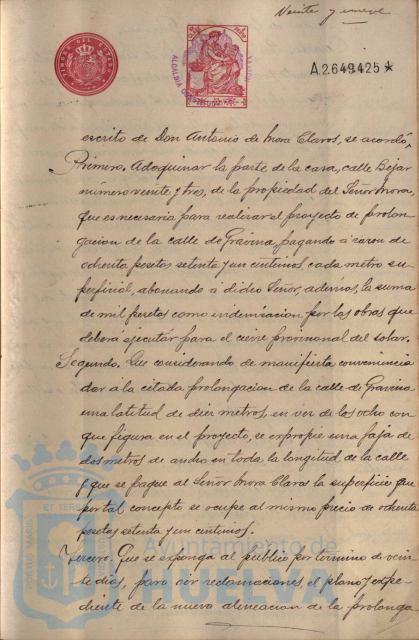 Veinte y nueve
TIMBRE DEL ESTADO
A.2.649.425
escrito de Don Antonio de Mora Claros, se acordó,
Primero. Adoquinar la parte de la casa, calle Béjar
número veinte y tres, de la propiedad del Señor Mora,
que es necesaria para realizar el proyecto de prolon-
gacion de la calle de Gravina, pagando á razon de
ochenta pesetas setenta y un centimos, cada metro su-
perficial, abonando á dicho Señor, ademas, la suma
de mil pesetas como indemnizacion por las obras que
deberá ejecutar para el cierre provisional del solar.
Segundo. Que considerando de manifiesta conveniencia
dar á la citada prolongacion de la calle de Gravina
una latitud de diez metros, en vez de los ocho con
que figura en el proyecto, se expropie una faja de
dos metros de ancho en toda la longitud de la calle
y que se pague al Señor Mora Claros la superficie que
por tal concepto se ocupe al mismo precio de ochenta
pesetas setenta y un centimos.
Tercero. Que se exponga al publico por termino de vein-
te dias, para oir reclamaciones, el plano y expe-
diente de la nueva alineacion de la prolonga
Ayuntamiento de
HUELVA